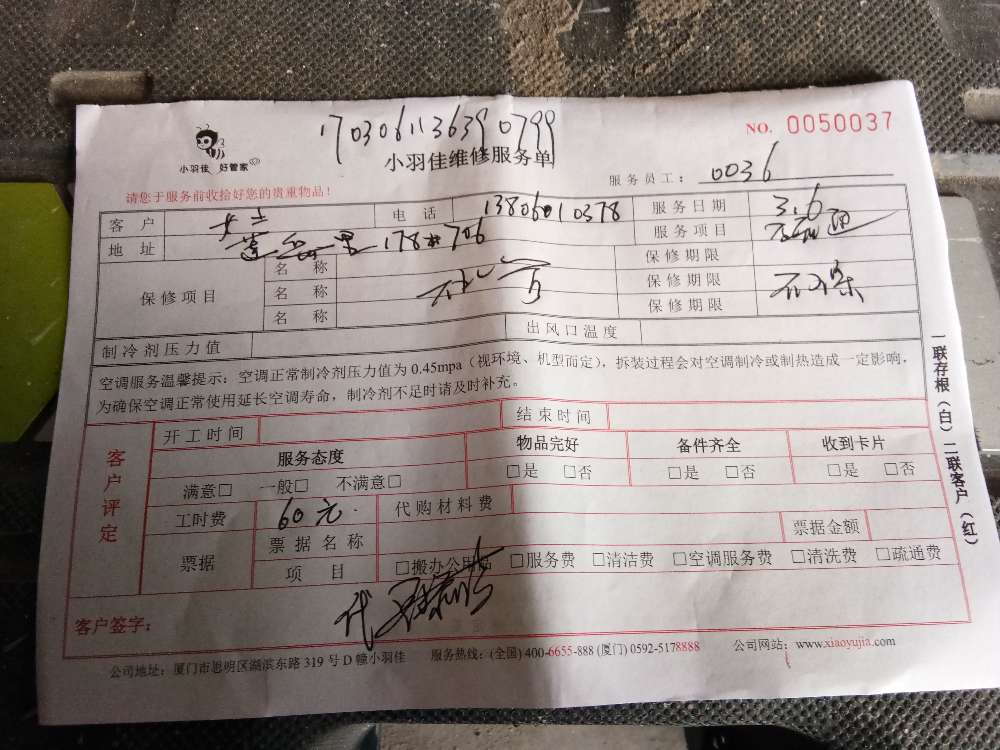 1703061136390799
NO. 0050037
小羽佳 好管家
小羽佳维修服务单
请您于服务前收拾好您的贵重物品！
服务员工： 0036
客户 女士 电话 13806010378 服务日期 3.6
地址 莲岳里178#706 服务项目
保修项目 名称 保修期限
名称 保修期限
名称 保修期限
制冷剂压力值 出风口温度
空调服务温馨提示：空调正常制冷剂压力值为 0.45mpa（视环境、机型而定），拆装过程会对空调制冷或制热造成一定影响，
为确保空调正常使用延长空调寿命，制冷剂不足时请及时补充。
客户评定
开工时间 结束时间
服务态度 物品完好 备件齐全 收到卡片
满意□ 一般□ 不满意□ □是 □否 □是 □否 □是 □否
工时费 60元 代购材料费
票据 票据名称 票据金额
项目 □搬办公用品 □服务费 □清洁费 □空调服务费 □清洗费 □疏通费
客户签字： 代
公司地址：厦门市思明区湖滨东路 319 号 D 幢小羽佳 服务热线：(全国) 400-6655-888 (厦门) 0592-5178888 公司网站：www.xiaoyujia.com
一联存根（白）二联客户（红）